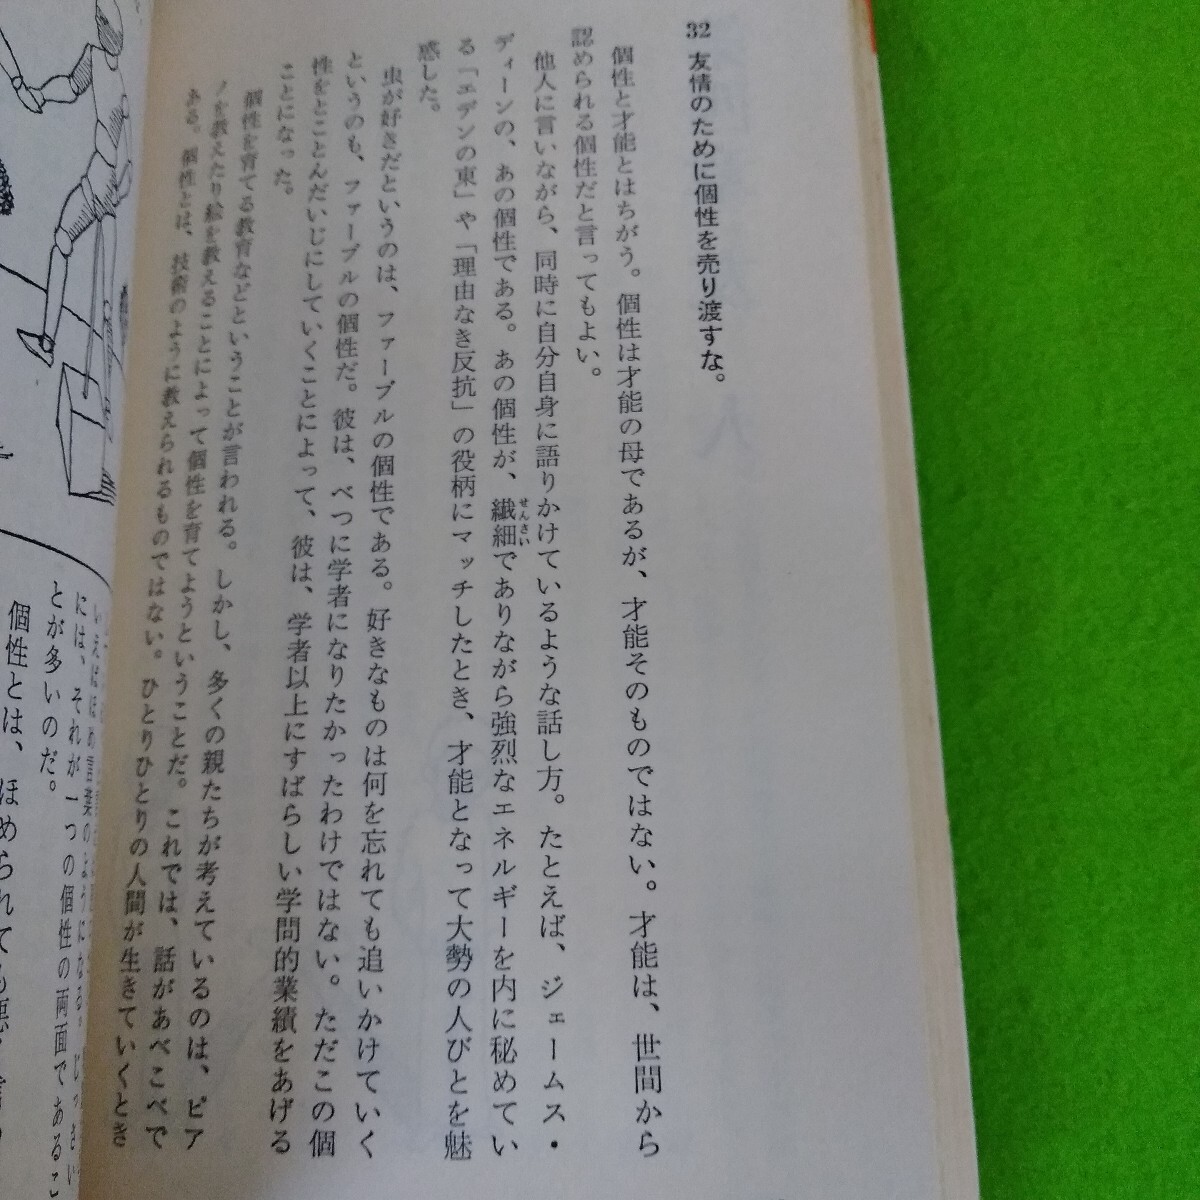 32 友情のために個性を売り渡すな。
個性と才能とはちがう。個性は才能の母であるが、才能そのものではない。才能は、世間から
認められる個性だと言ってもよい。
他人に言いながら、同時に自分自身に語りかけているような話し方。たとえば、ジェームス・
ディーンの、あの個性である。あの個性が、繊細でありながら強烈なエネルギーを内に秘めてい
せんさい
る「エデンの東」や「理由なき反抗」の役柄にマッチしたとき、才能となって大勢の人びとを魅
惑した。
虫が好きだというのは、ファーブルの個性である。好きなものは何を忘れても追いかけていく
というのも、ファーブルの個性だ。彼は、べつに学者になりたかったわけではない。ただこの個
性をとことんだいじにしていくことによって、彼は、学者以上にすばらしい学問的業績をあげる
ことになった。
個性を育てる教育などということが言われる。しかし、多くの親たちが考えているのは、ピア
ノを教えたり絵を教えることによって個性を育てようということだ。これでは、話があべこべで
ある。個性とは、技術のように教えられるものではない。ひとりひとりの人間が生きていくとき
いえばほめ言葉のようになる。じっさい
には、それが一つの個性の両面であるこ
とが多いのだ。
個性とは、ほめられても悪